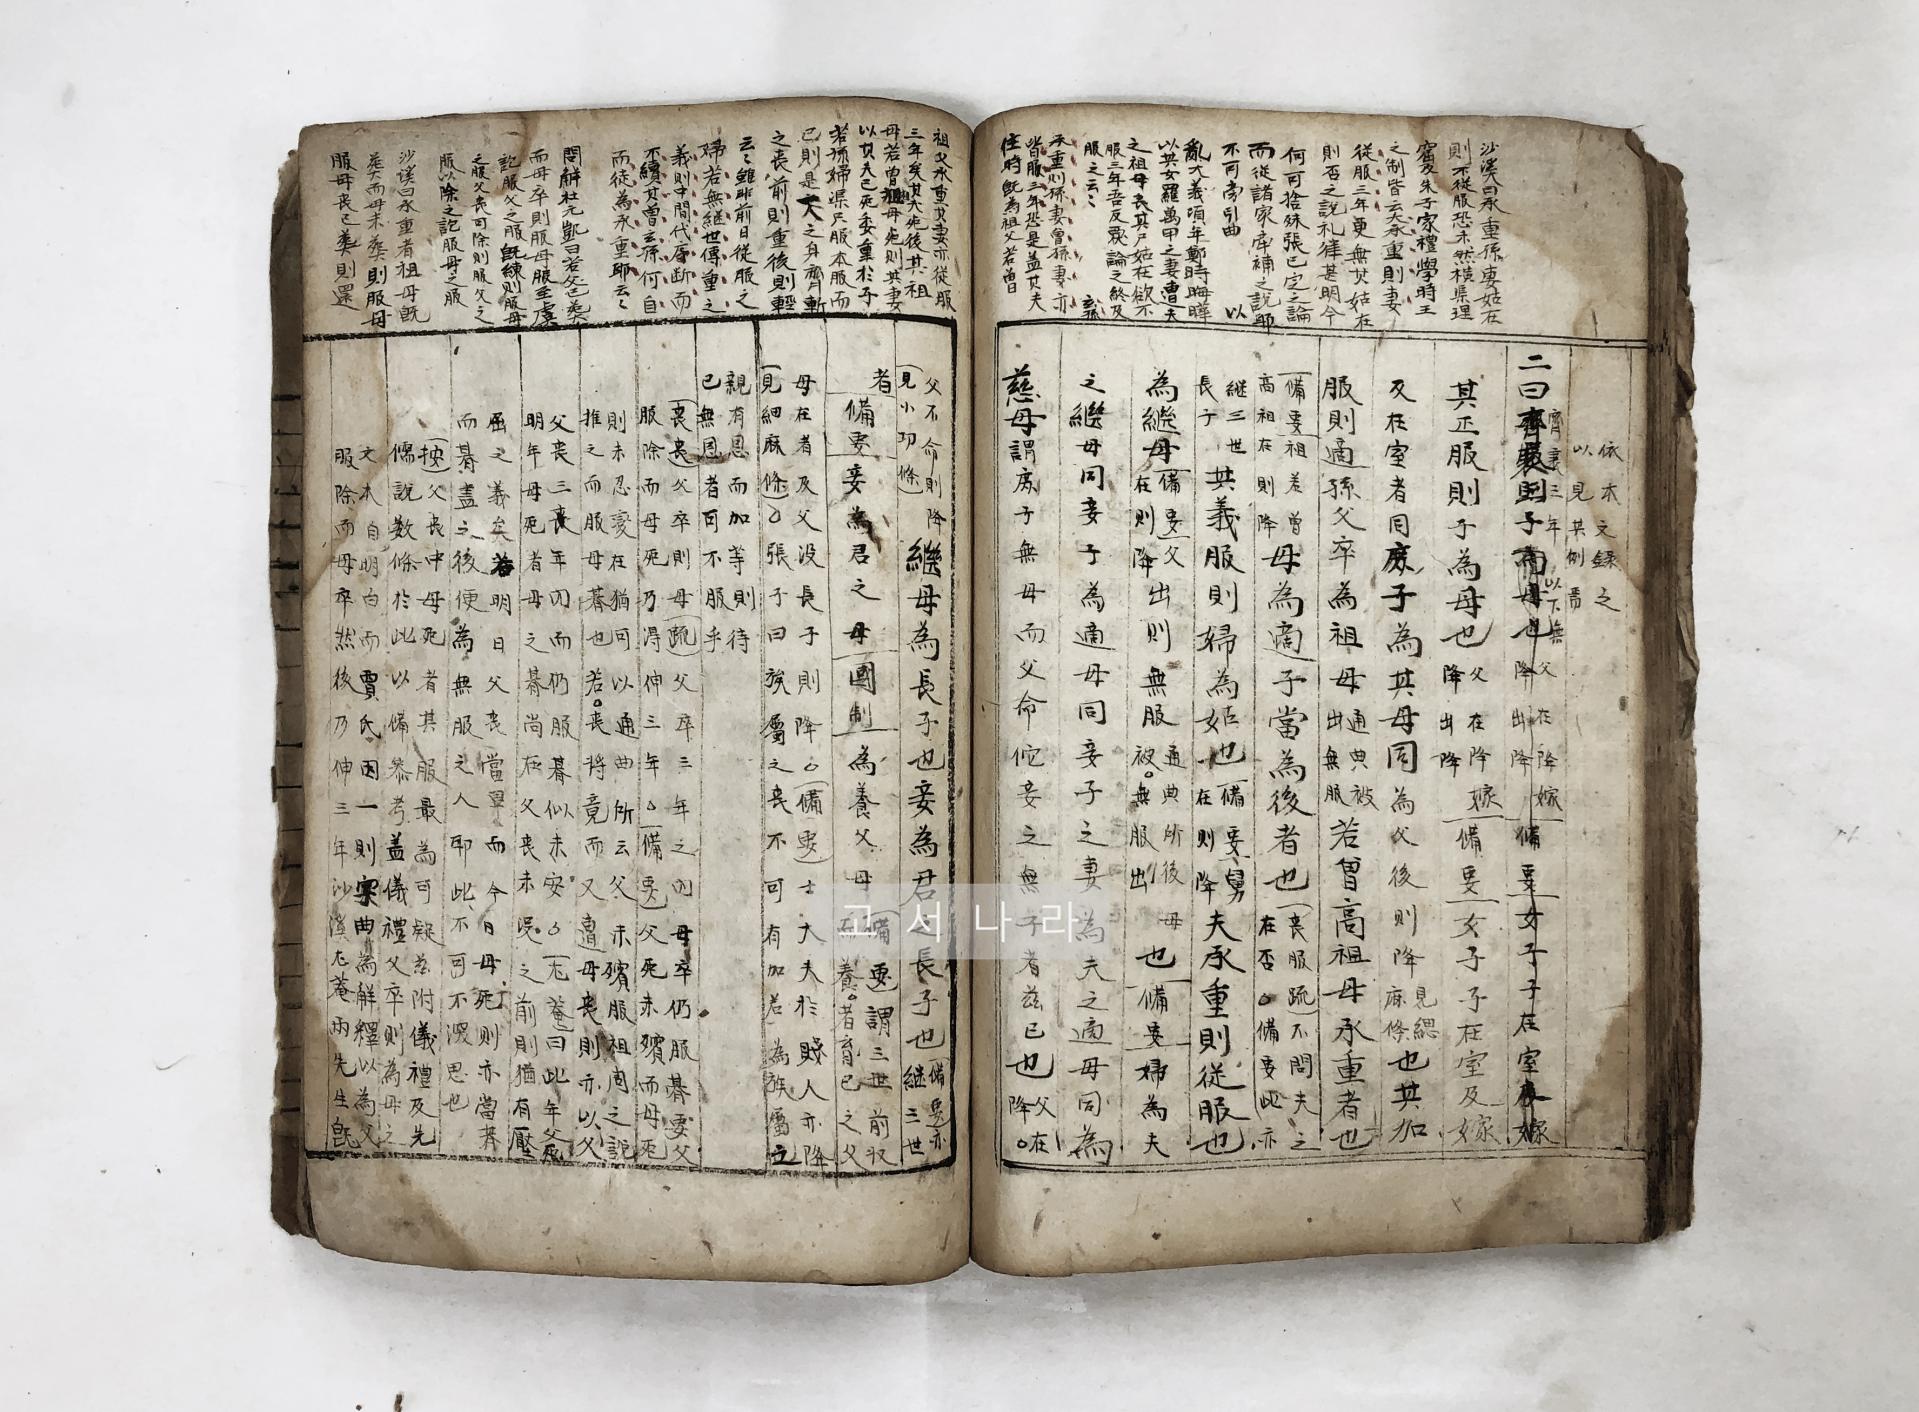 沙溪曰承重孫妻姑在
則不從服恐未然橫渠理
窟及朱子家禮學時王
之制皆云夫承重則妻
從服三年更無其姑在
則否之說礼律甚明今
何可捨殊張已定之論
而從諸家疏補之說耶
不可旁引曲 以
亂大義頃年鄭時晦曄
以其女羅萬甲之妻遭夫
之祖母喪其尸姑在欲不
服三年吾反覆論之終及
服之云云
承重則孫妻曾孫妻亦
皆服三年恐是盖其夫
依本文錄之
以見其例
二曰齊衰則子為母也
父在降嫁
降出降
備要女子子在室及嫁
其正服則子為母也
父在降嫁
降出降
備要女子子在室及嫁
及在室者同庶子為其母同為父後則降
見緦
麻條
也其加
服則適孫父卒為祖母
通典被
出無服
若曾高祖母承重者也
備要祖若曾
高祖在則降
母為適子當為後者也
喪服疏不問夫之
在否○備要此亦
繼三世
長子
其義服則婦為姑也
備要舅
在則降
夫承重則從服也
為繼母
備要父
在則降
出則無服
通典所後母
被○無服出
也備要婦為夫
之繼母同妾子為適母同妾子之妻為夫之適母同為
慈母謂庶子無母而父命佗妾之無子者慈已也
父在
降○
祖父承重其妻亦從服
三年矣其夫死後其祖
母若曾祖母死則其妻
以其夫已死委重於子
若孫婦渠只服本服而
已則是夫之身齊斬
之喪前則重後則輕
云云雖非前日從服之
婦若無繼世傳重之
義則中間代序断而
不續其曾玄孫何自
而徒為承重耶云云
問解杜元凱曰若父已葬
而母卒則服母服至虞
訖服父之服既練則服母
之服父喪可除則服父之
服以除之訖服母之服
沙溪曰承重者祖母既
葬而母未葬則服母
服母喪已葬則還
父不命則降
見小功條
繼母為長子也妾為君之長子也
備要亦
繼三世
者備要妾為君之母國制為養父母
備要謂三世前收
而養○者育已之父
母在者及父沒長子則降○備要士大夫於賤人亦降
見緦麻條○張子曰族屬之喪不可有加若為族屬之
親有恩而加等則待
已無恩者可不服乎
喪喪父卒則母疏父卒三年之內母卒仍服朞要父
服除而母死乃得伸三年○備要父死未殯而母死
則未忍變在猶可以通典所云父未殯服祖周之說
推之而服母朞也若○喪將竟而又遭母喪則亦以父
父喪三喪年內而仍服朞似未安○尤菴曰此年父死
明年母死者母之朞尚在父喪未闋之前則猶有壓
屈之義矣若明日父喪當畢而今日母死則亦當朞
而朞盡之後便為無服之人耶此不可不深思也
按父喪中母死者其服最為可疑玆附儀禮及先
儒說數條於此以備參考盖儀禮父卒則為母之
文本自明白而賈氏因一則字曲為解釋以為父
服除而母卒然後乃伸三年沙溪尤菴兩先生旣
고서나라